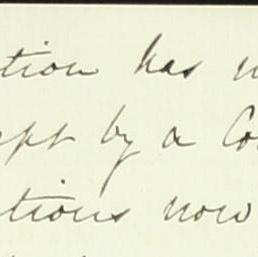 tion has
ept by a Co
tions now